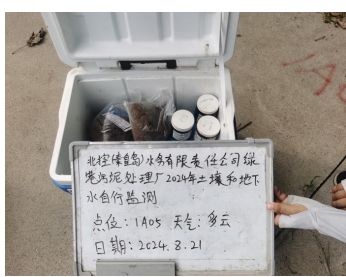 北控(秦皇岛)水务有限责任公司绿
港污泥处理厂2024年土壤和地下
水自行监测
点位:1A05 天气:多云
日期:2024.8.21
1A0